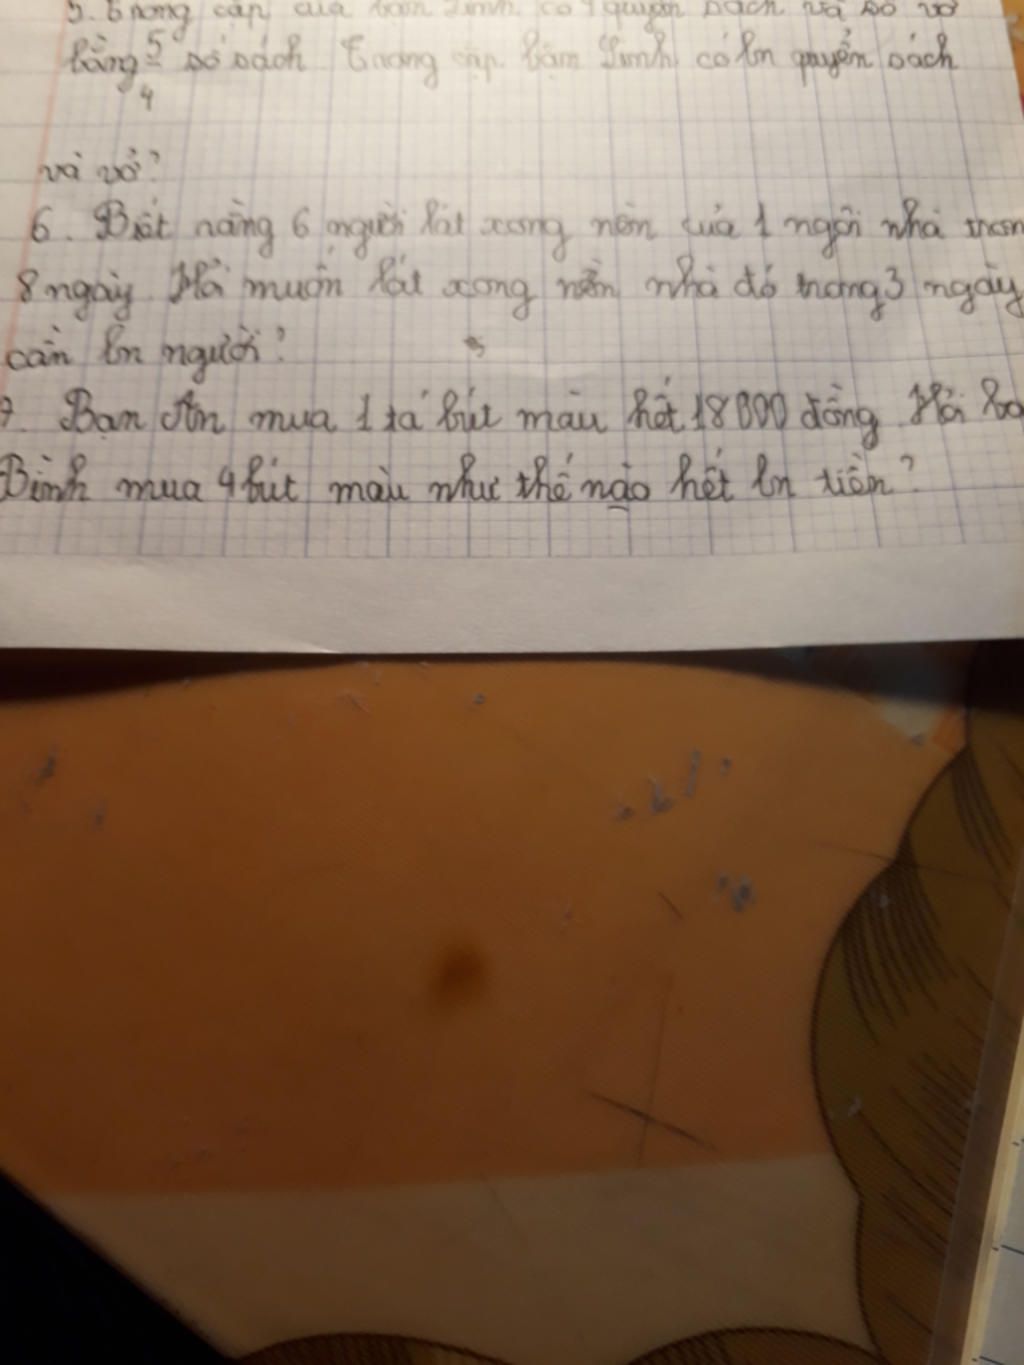 5. Trong cặp của bạn Linh có quyển sách và số vở
bằng 5/4 số sách Trong cặp bạn Linh có bn quyển sách
và vở?
6. Biết rằng 6 người lát xong nền của 1 ngôi nhà tron
8 ngày Hỏi muốn lát xong nền nhà đó trong 3 ngày
cần bn người?
7. Bạn An mua 1 tá bút màu hết 18000 đồng Hỏi bạ
Bình mua 4 bút màu như thế nào hết bn tiền?